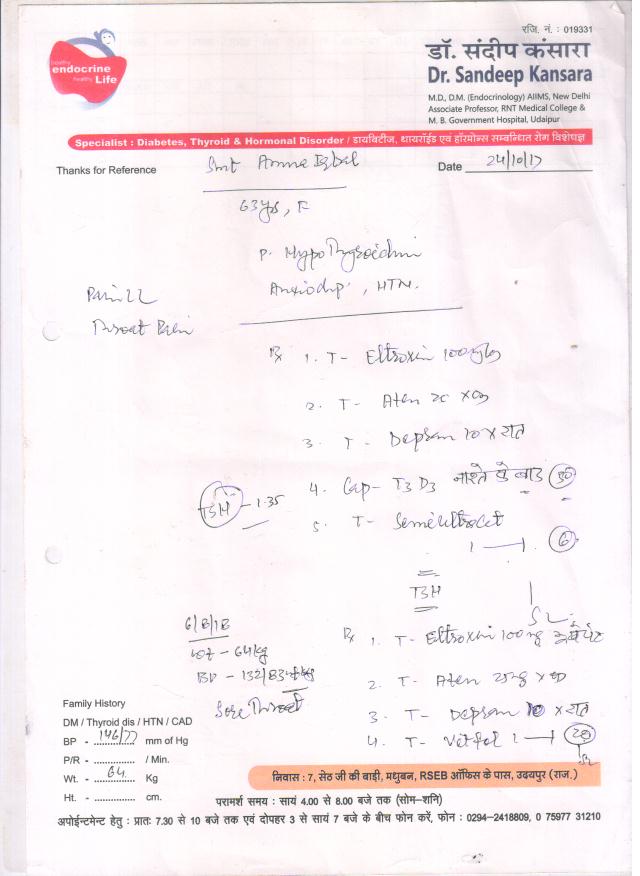 रजि. नं. : 019331
healthy
endocrine
healthy Life
डॉ. संदीप कंसारा
Dr. Sandeep Kansara
M.D., D.M. (Endocrinology) AIIMS, New Delhi
Associate Professor, RNT Medical College &
M. B. Government Hospital, Udaipur
Specialist : Diabetes, Thyroid & Hormonal Disorder / डायबिटीज, थायरॉईड एवं हॉरमोन्स सम्बन्धित रोग विशेषज्ञ
Thanks for Reference Smt Date 24/10/17
63 yrs, F
P. Hypothyroidism
, HTN.
Throat Pain
Rx 1. T- Eltroxin 100
2. T- Aten
3. T- Depsam 10 x रात
4. Cap- T3 D3 नाश्ते के बाद
TSH - 1.35
5. T- Semi ultracet
6
TSH
Wt - 64 kg
BP - 132/83
Rx 1. T- Eltroxin 100
2. T- Aten
3. T- Depsam 10 x रात
4. T-
Sore Throat
Family History
DM / Thyroid dis / HTN / CAD
BP - 146/77 mm of Hg
P/R - / Min.
Wt. - 64 Kg
Ht. - cm.
निवास : 7, सेठ जी की बाड़ी, मधुबन, RSEB ऑफिस के पास, उदयपुर (राज.)
परामर्श समय : सायं 4.00 से 8.00 बजे तक (सोम–शनि)
अपोईन्टमेन्ट हेतु : प्रातः 7.30 से 10 बजे तक एवं दोपहर 3 से सायं 7 बजे के बीच फोन करें, फोन : 0294-2418809, 0 75977 31210